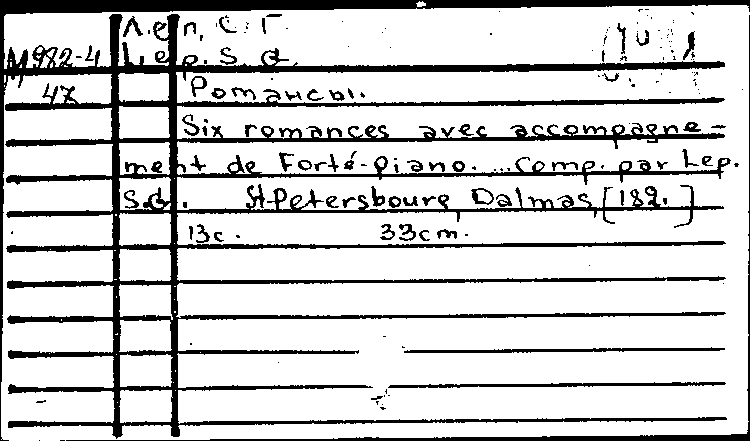 Леп, С. Г.
М982-4 Lep. S. G.
47 Романсы.
Six romances avec accompagne-
ment de Forté-piano. ...comp. par Lep.
S.G. St-Petersbourg, Dalmas, [182. ]
13с. 33cm.